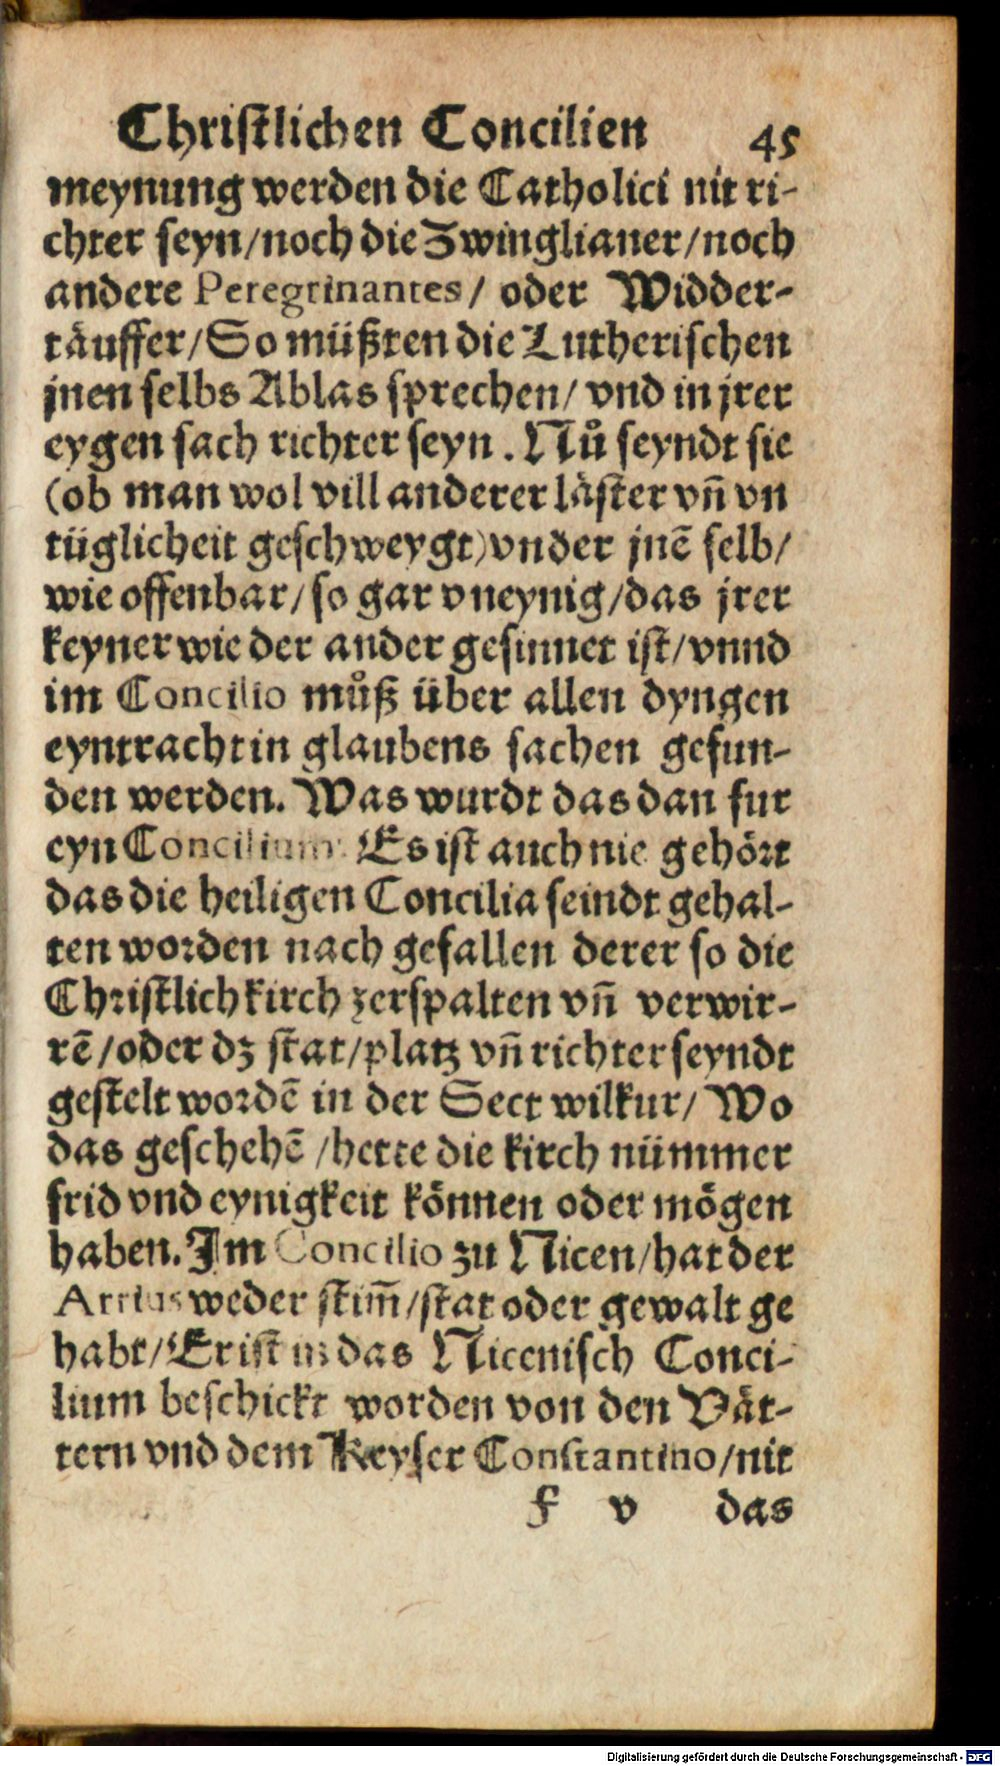 Christlichen Concilien 45
meynung werden die Catholici nit ri-
chter seyn/noch die Zwinglianer/noch
andere Peregrinantes/ oder Widder-
täuffer/So müßten die Lutherischen
jnen selbs Ablas sprechen/ vnd in jrer
eygen sach richter seyn. Nů seyndt sie
(ob man wol vill anderer läster vñ vn
tüglicheit geschweygt)vnder jnē selb/
wie offenbar/so gar vneynig/das jrer
keyner wie der ander gesinnet ist/vnnd
im Concilio můß über allen dyngen
eyntracht in glaubens sachen gefun-
den werden. Was wurdt das dan fur
eyn Concilium? Es ist auch nie gehört
das die heiligen Concilia seindt gehal-
ten worden nach gefallen derer so die
Christlich kirch zerspalten vñ verwir-
rē/oder dz stat/platz vñ richter seyndt
gestelt wordē in der Sect wilkur/ Wo
das geschehē/hette die kirch nümmer
frid vnd eynigkeit können oder mögen
haben. Im Concilio zu Nicen/hat der
Arrius weder stim̄/stat oder gewalt ge
habt/Er ist in das Nicenisch Conci-
lium beschickt worden von den Vät-
tern vnd dem Keyser Constantino/nit
f v das
Digitalisierung gefördert durch die Deutsche Forschungsgemeinschaft - DFG